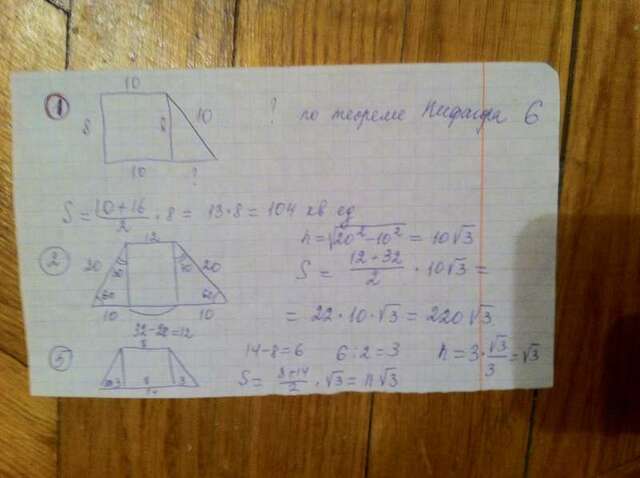 1
10
8 8 10
? по теореме Пифагора 6
10 ?
S = (10+16)/2 · 8 = 13·8 = 104 кв ед
2
12
20 30 30 20
60 60
10 10
32-20=12
h = √(20²-10²) = 10√3
S = (12+32)/2 · 10√3 =
= 22·10·√3 = 220√3
8
3 8 3
14-8=6 6:2=3 h = 3·√3/3 = √3
S = (8+14)/2 · √3 = 11√3